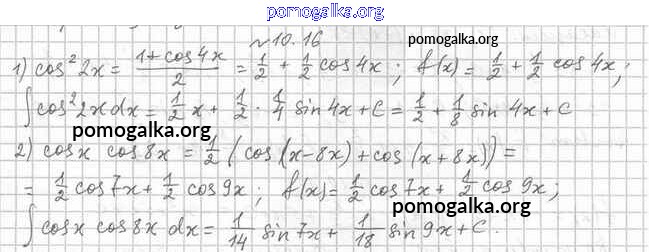 pomogalka.org
№10.16
pomogalka.org
1) cos² 2x = (1 + cos 4x)/2 = 1/2 + 1/2 cos 4x ; f(x) = 1/2 + 1/2 cos 4x ;
∫ cos² 2x dx = 1/2 x + 1/2 · 1/4 sin 4x + C = 1/2 + 1/8 sin 4x + C
pomogalka.org
2) cos x cos 8x = 1/2 (cos (x - 8x) + cos (x + 8x)) =
= 1/2 cos 7x + 1/2 cos 9x ; f(x) = 1/2 cos 7x + 1/2 cos 9x ;
pomogalka.org
∫ cos x cos 8x dx = 1/14 sin 7x + 1/18 sin 9x + C.